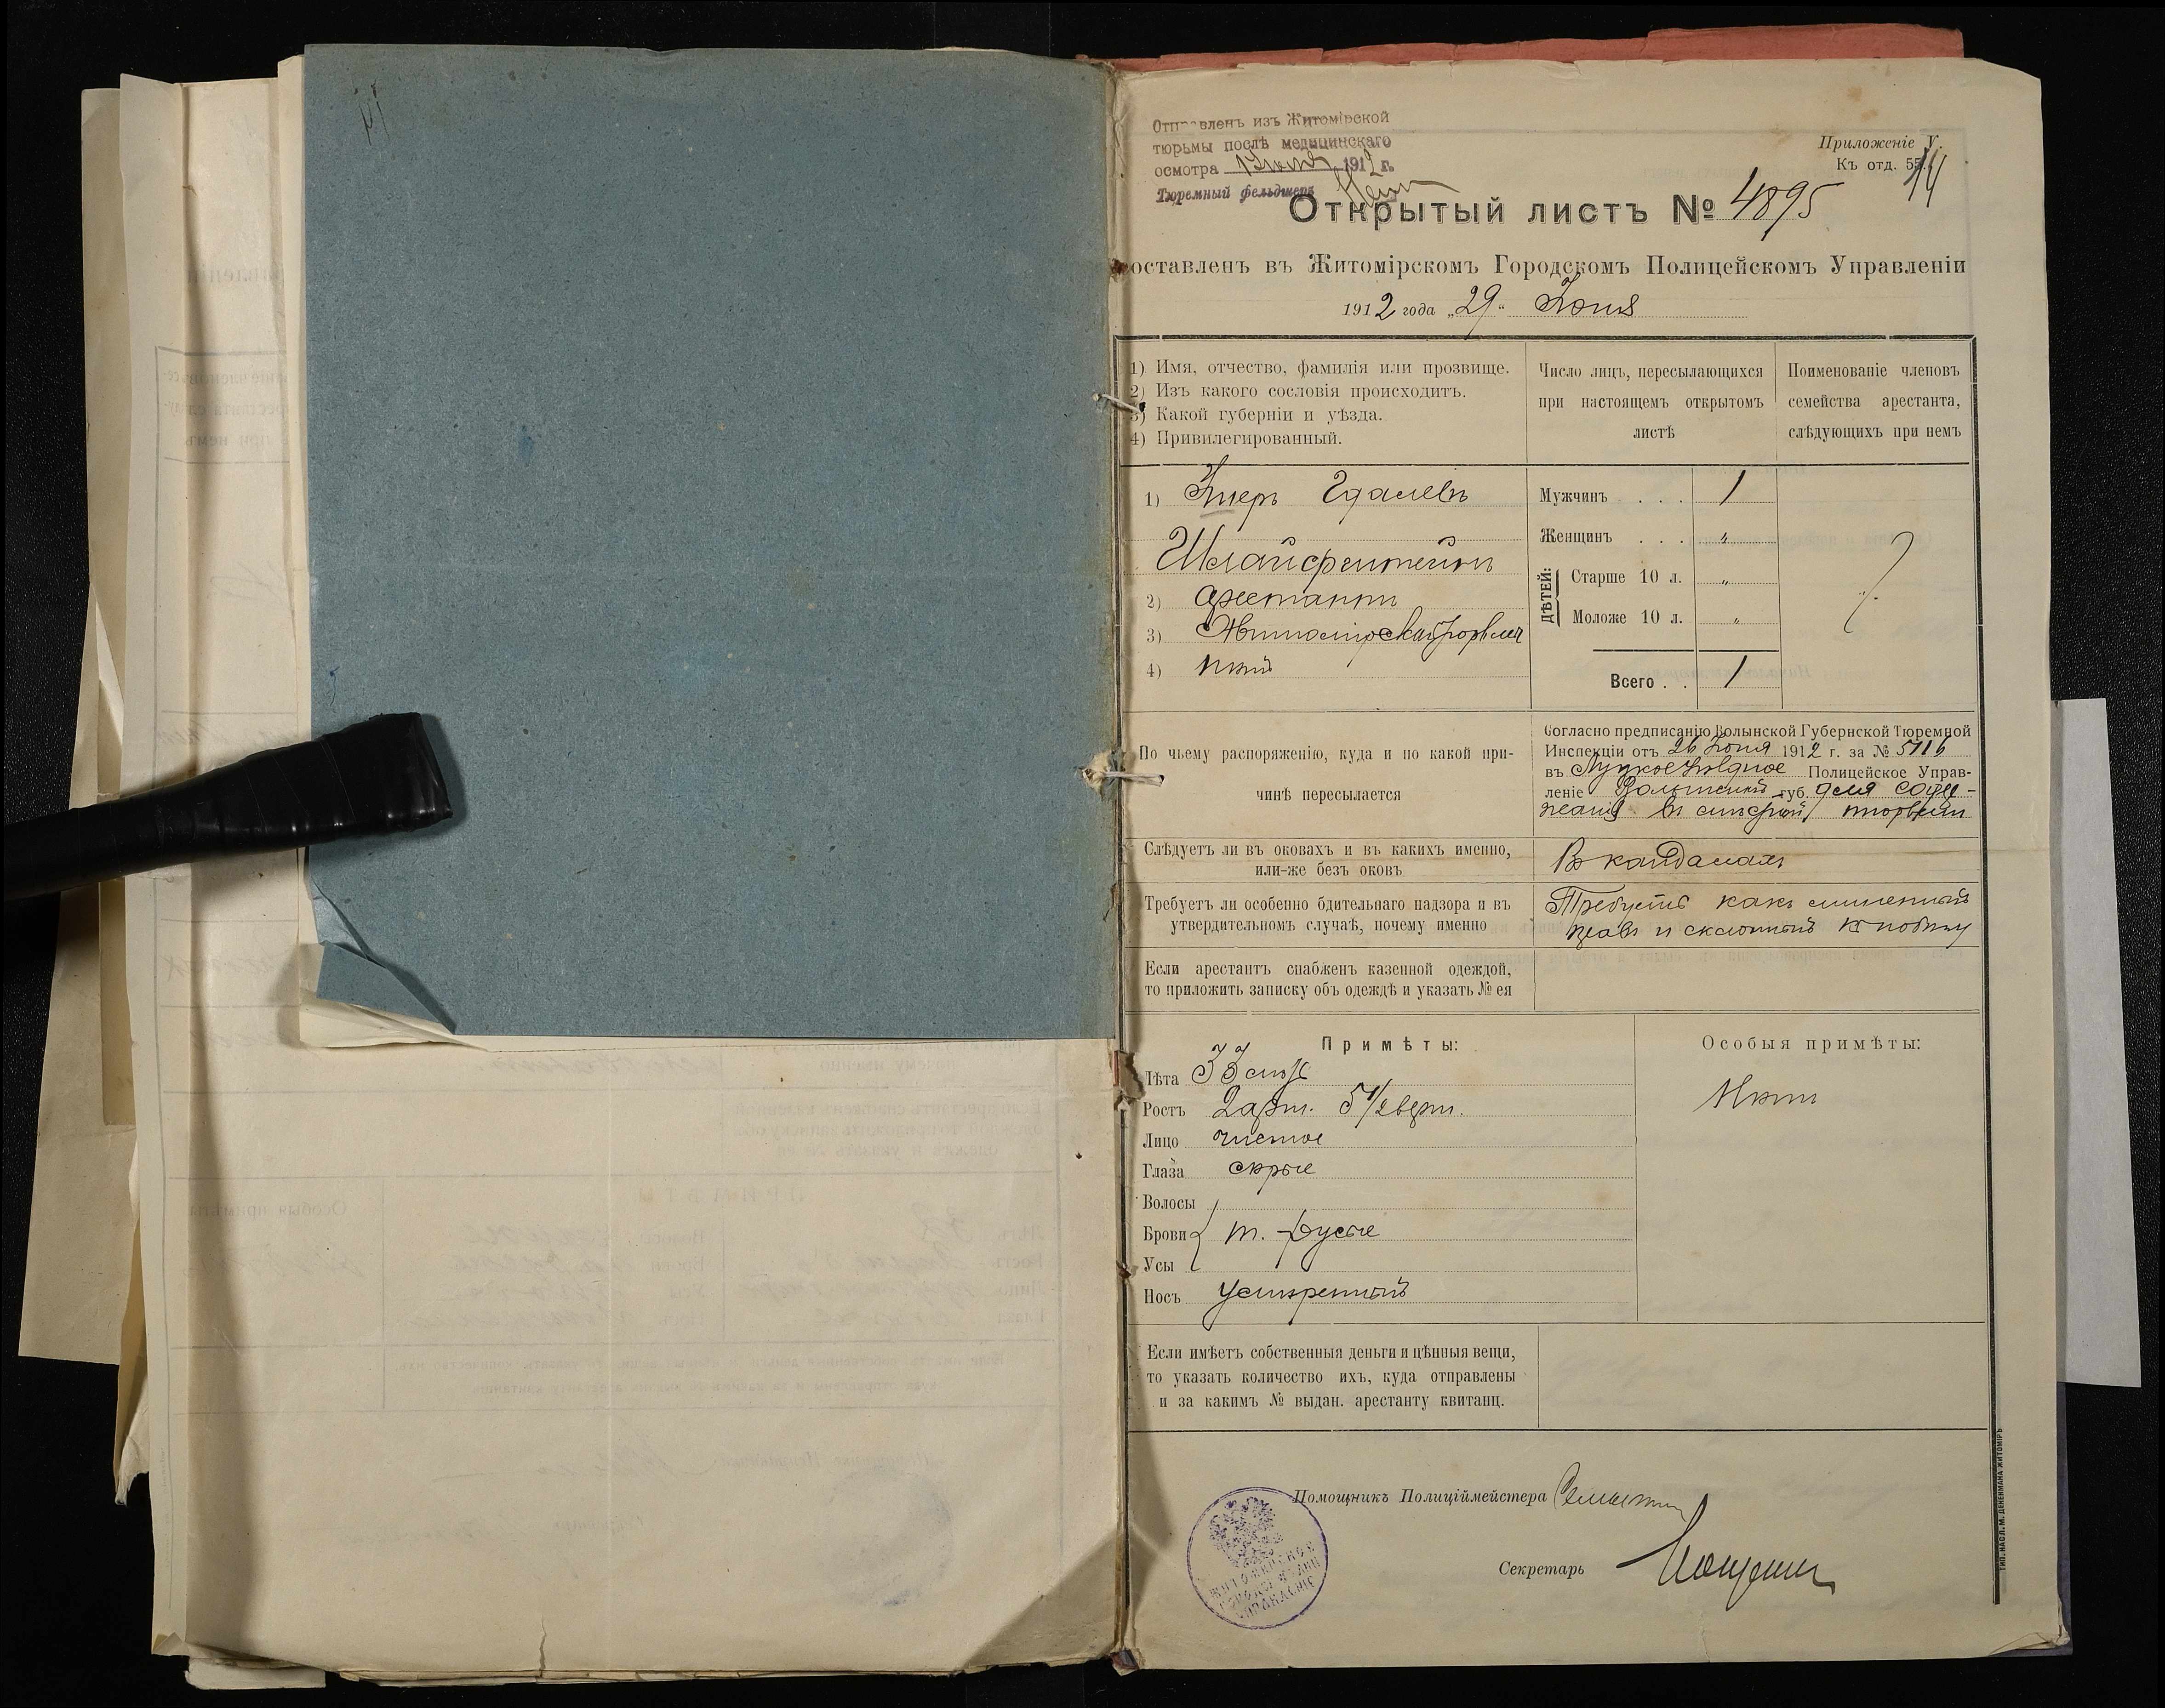 Отправленъ изъ Житомірской
тюрьмы послѣ медицинскаго
осмотра 1912 г.
Тюремный фельдшеръ
Приложеніе V.
Къ отд. 55.
14
Открытый листъ № 4895
оставленъ въ Житомірскомъ Городскомъ Полицейскомъ Управленіи
1912 года „29“ Іюня
1) Имя, отчество, фамилія или прозвище.
2) Изъ какого сословія происходитъ.
3) Какой губерніи и уѣзда.
4) Привилегированный.
Число лицъ, пересылающихся
при настоящемъ открытомъ
листѣ
Поименованіе членовъ
семейства арестанта,
слѣдующихъ при немъ
1) Гдалевъ
Шлайферштейнъ
2) арестантъ
3) Житомірской
4) нѣтъ
Мужчинъ . . . 1
Женщинъ . . . „
ДѢТЕЙ:
Старше 10 л. „
Моложе 10 л. „
Всего . . 1
По чьему распоряженію, куда и по какой при-
чинѣ пересылается
Согласно предписанію Волынской Губернской Тюремной
Инспекціи отъ 26 Іюня 1912 г. за № 5116
въ Луцкое Уѣздное Полицейское Управ-
леніе Волынской губ. для содер-
жанія въ тюрьмѣ
Слѣдуетъ ли въ оковахъ и въ какихъ именно,
или-же безъ оковъ
Въ кандалахъ
Требуетъ ли особенно бдительнаго надзора и въ
утвердительномъ случаѣ, почему именно
Требуетъ какъ лишенный
правъ и склонный къ побѣгу
Если арестантъ снабженъ казенной одеждой,
то приложить записку объ одеждѣ и указать № ея
Примѣты:
Лѣта 33 лѣтъ
Ростъ 2 арш. 5 1/2 верш.
Лицо чистое
Глаза сѣрые
Волосы
Брови т.-русые
Усы
Носъ умѣренный
Особыя примѣты:
Нѣтъ
Если имѣетъ собственныя деньги и цѣнныя вещи,
то указать количество ихъ, куда отправлены
и за какимъ № выдан. арестанту квитанц.
Помощникъ Полиціймейстера
Секретарь
ЖИТОМІРСКОЕ
УПРАВЛЕНІЕ
ТИП. НАСЛ. М. ДЕНЕНМАНА ЖИТОМІРЪ